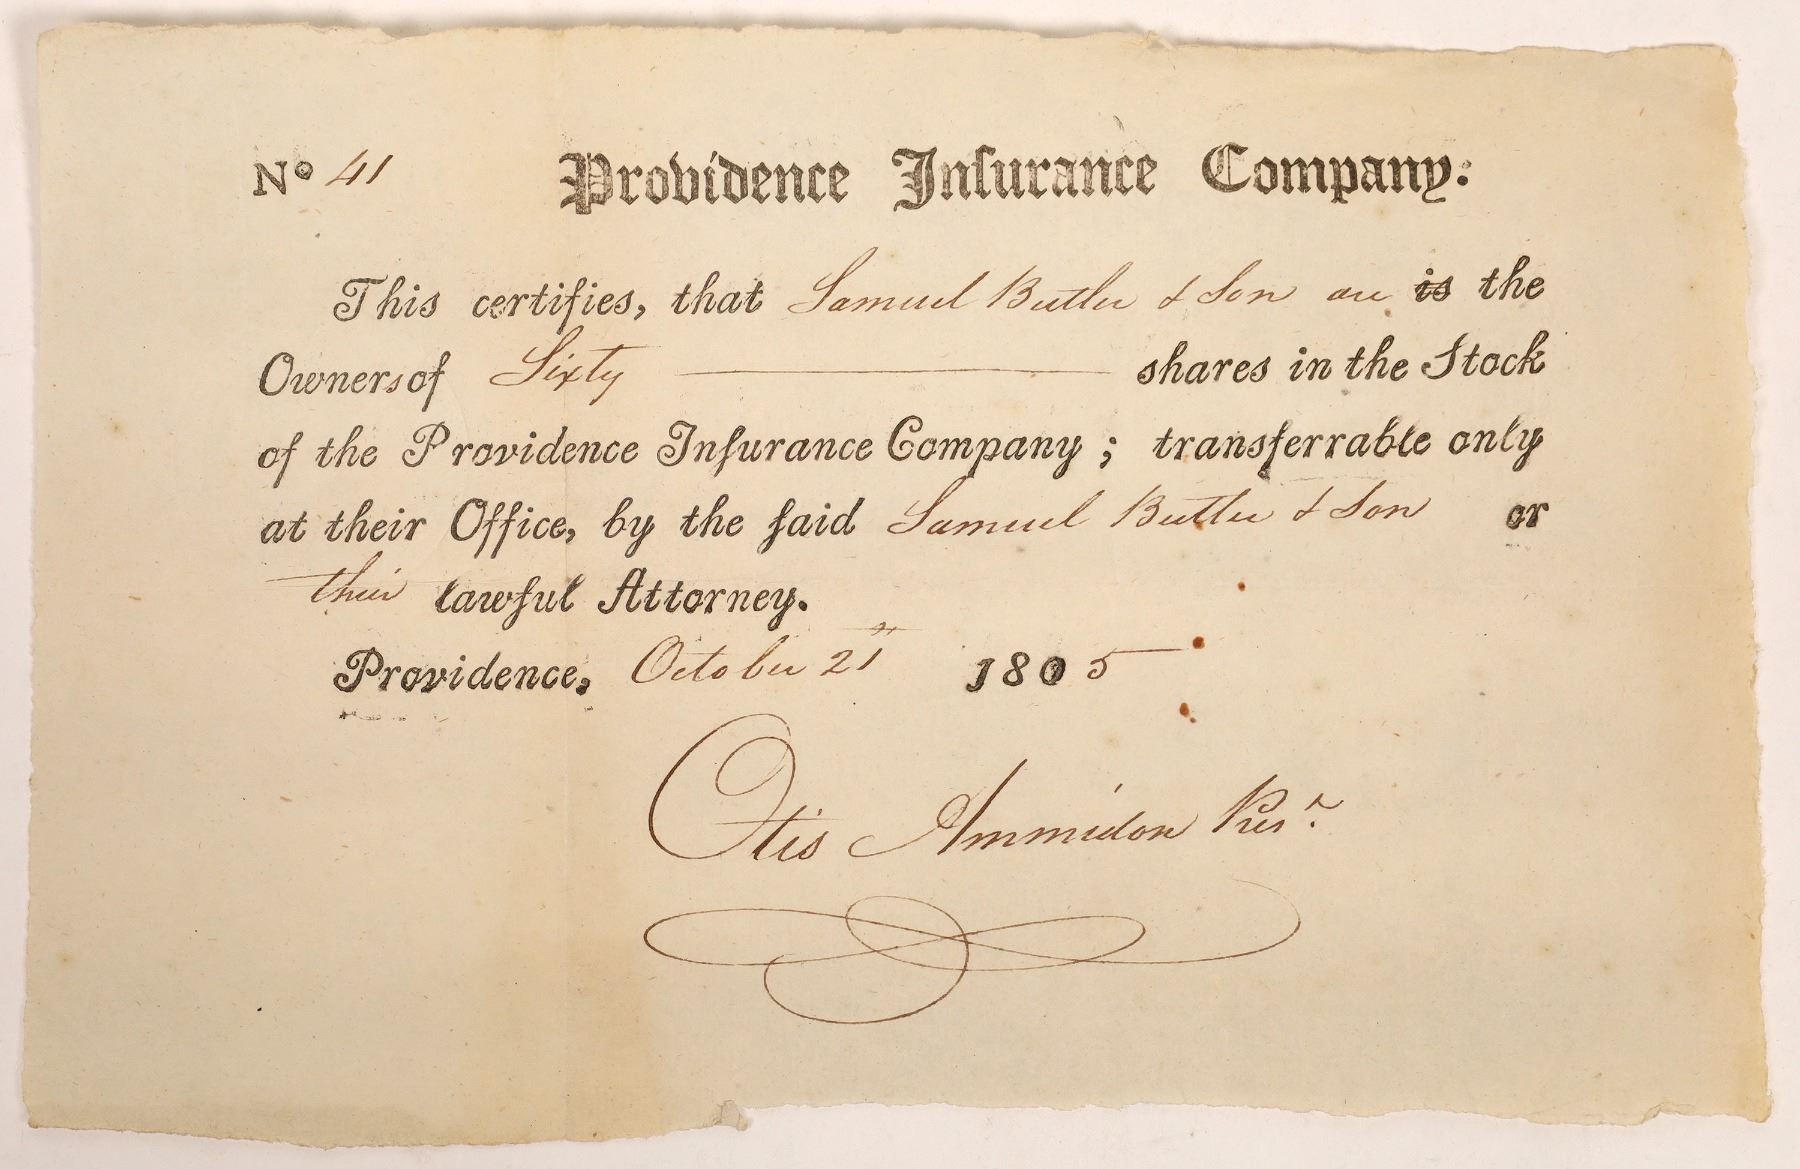 No 41 Providence Inſurance Company:
This certifies, that Samuel Butler & Son are is the
Owners of Sixty shares in the Stock
of the Providence Inſurance Company; transferrable only
at their Office, by the ſaid Samuel Butler & Son or
their lawful Attorney.
Providence, October 21st 1805
Otis Ammidon Presr.